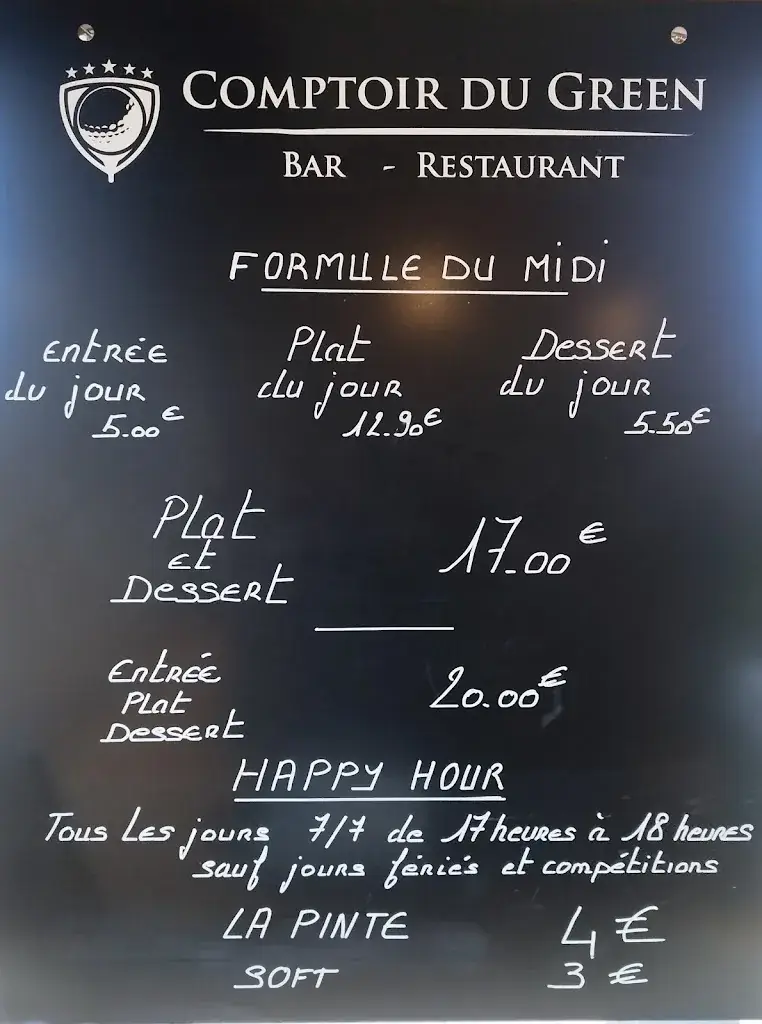 COMPTOIR DU GREEN
BAR - RESTAURANT
FORMULE DU MIDI
ENTRÉE Plat DESSERT
du jour du jour du jour
5.00€ 12.90€ 5.50€
Plat
ET
DESSERT
17.00€
ENTRÉE
PLAT
DESSERT
20.00€
HAPPY HOUR
Tous Les jours 7/7 de 17 heures à 18 heures
sauf jours fériés et compétitions
LA PINTE 4 €
SOFT 3 €